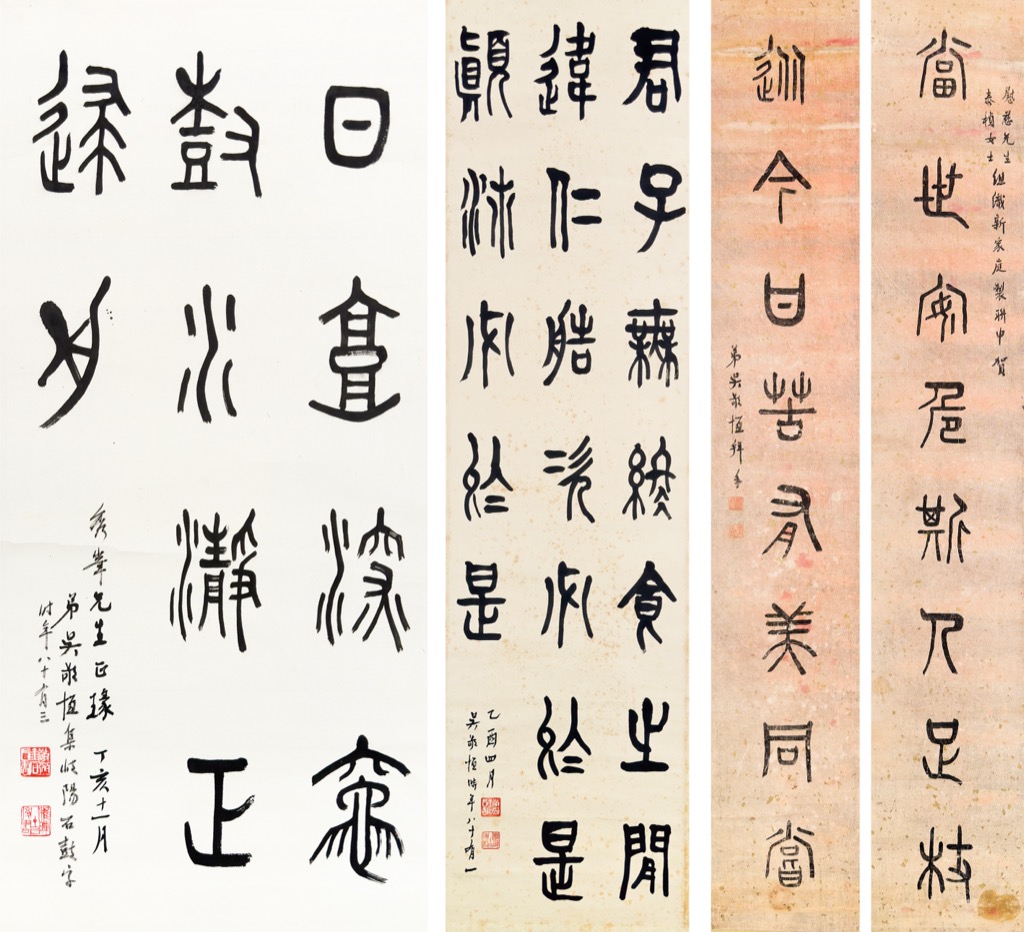 慰慈先生
泰楨女士 組織新家庭製聯申賀
當世安危斯人足杖
從今甘苦有美同嘗
弟吳敬恆拜手
君子無終食之閒
違仁造次必於是
顛沛必於是
乙酉四月
吳敬恆時年八十有一
日深
樹水瀞正
秀峯先生正瑑 丁亥十一月
弟吳敬恆集岐陽石鼓字
时年八十有三